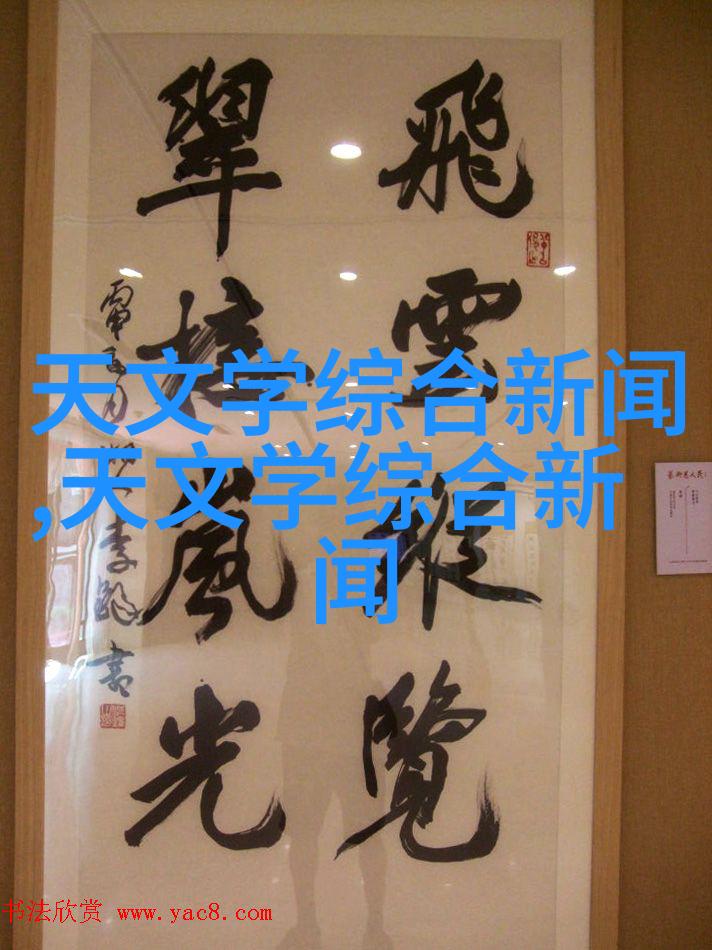 飛雲縱覽
翠嵐光
李鐸書
天文学综合新闻
,天文学综合新
闻
书法欣赏 www.yac8.com